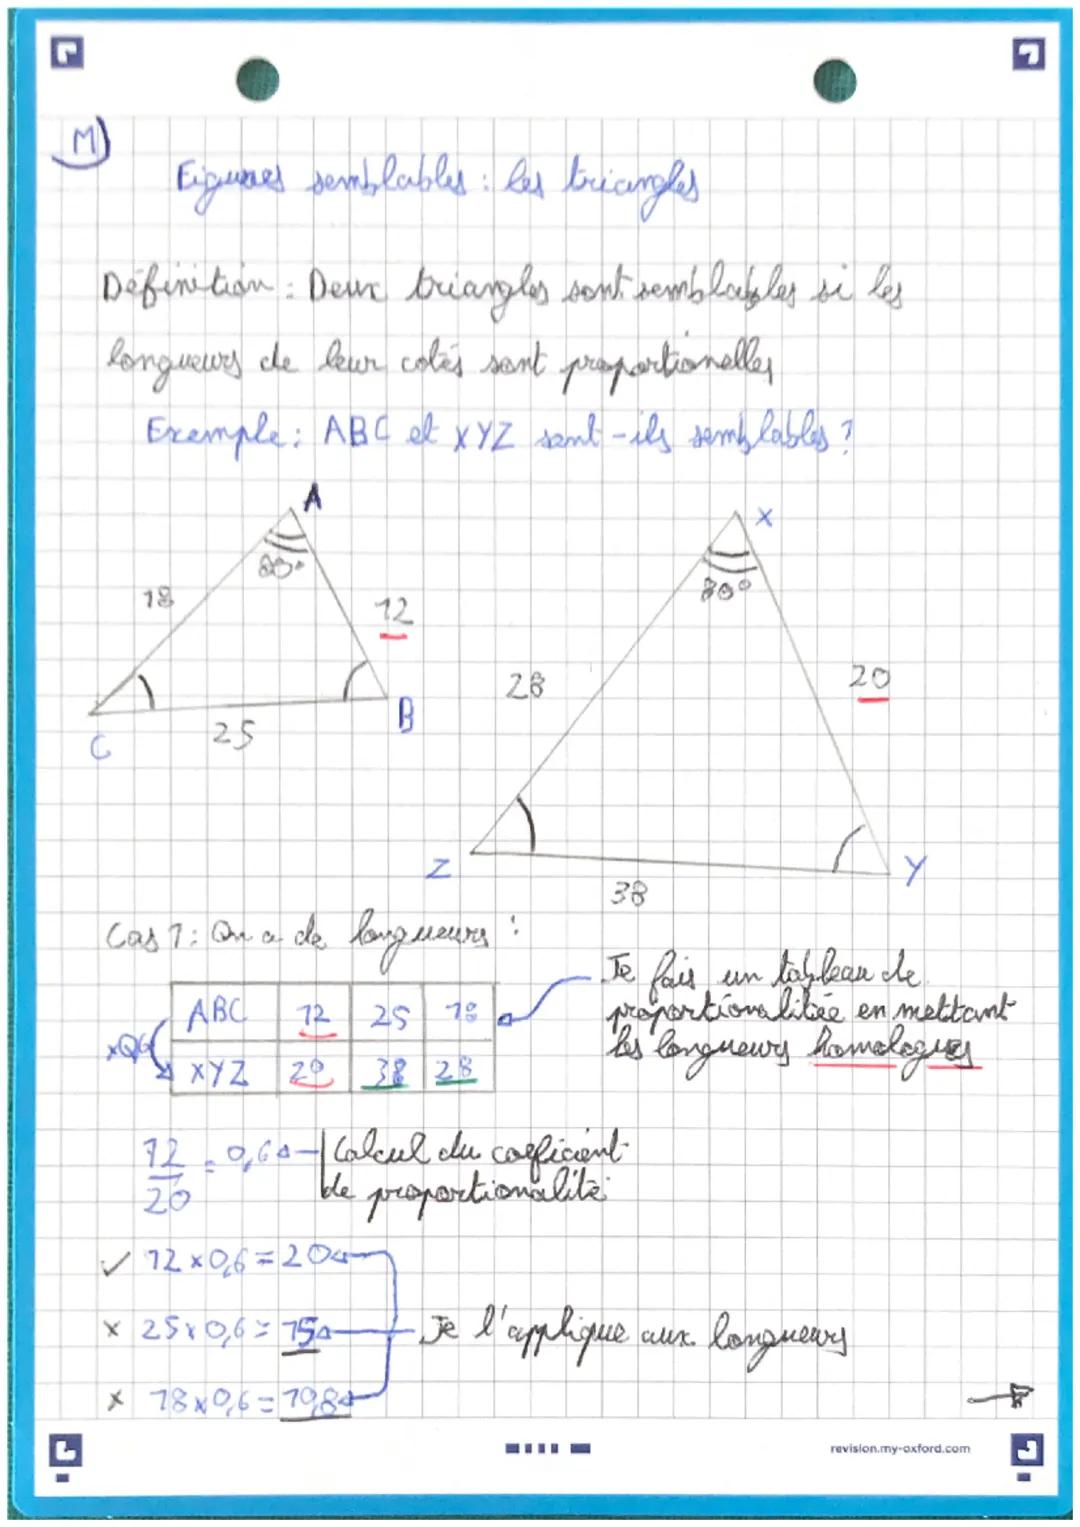 M)
Figures semblables : les triangles
Définition : Deux triangles sont semblables si les
longueurs de leur cotés sont proportionelles
Exemple : ABC et XYZ sont-ils semblables ?
A
80°
18
12
C
25
B
X
80°
28
20
Z
38
Y
Cas 1 : On a de longueurs :
ABC 12 25 18
x0,6
XYZ 20 38 28
Je fais un tableau de
proportionalitée en mettant
les longueurs homologues
12/20 = 0,6
Calcul du coeficient
de proportionalité
✓ 12 x 0,6 = 20
x 25 x 0,6 = 15
x 18 x 0,6 = 10,8
Je l'applique aux longueurs
revision.my-oxford.com